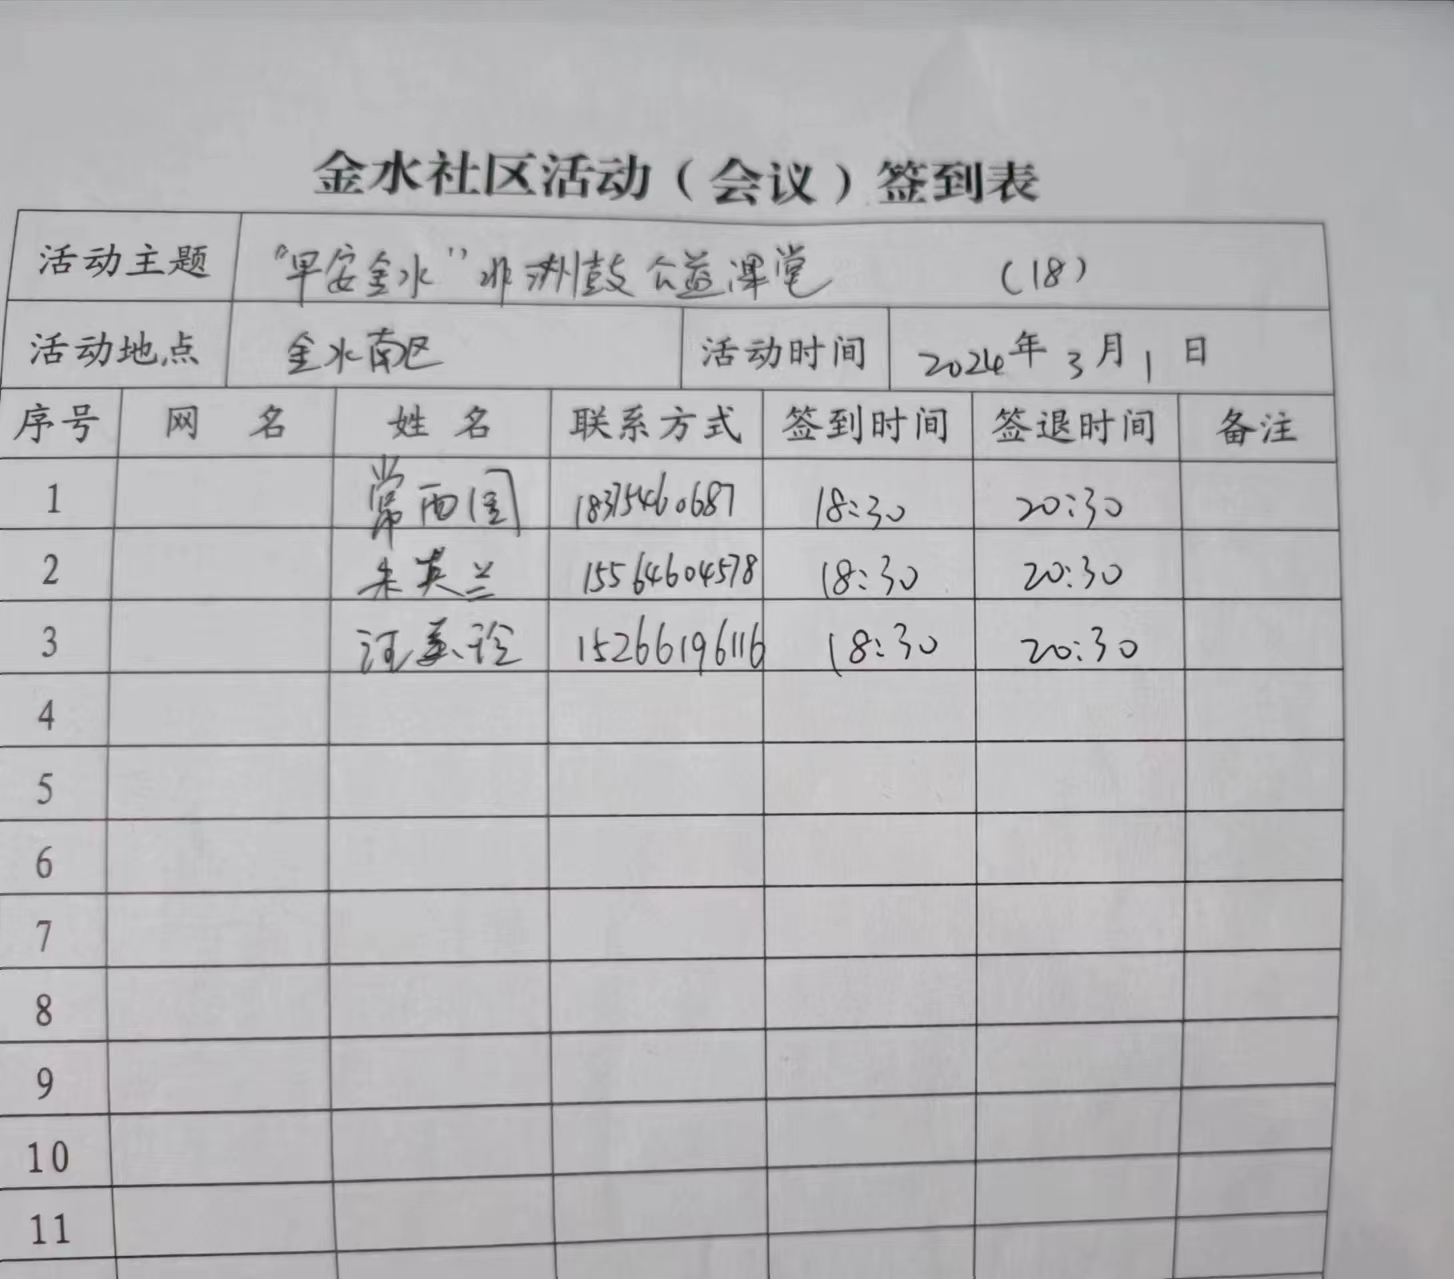 金水社区活动（会议）签到表
活动主题 “早安金水”非洲鼓公益课堂 （18）
活动地点 金水南区 活动时间 2024年3月1日
序号 网名 姓名 联系方式 签到时间 签退时间 备注
1 常西国 18375460687 18:30 20:30
2 朱英兰 15564604578 18:30 20:30
3 15266196116 18:30 20:30
4
5
6
7
8
9
10
11